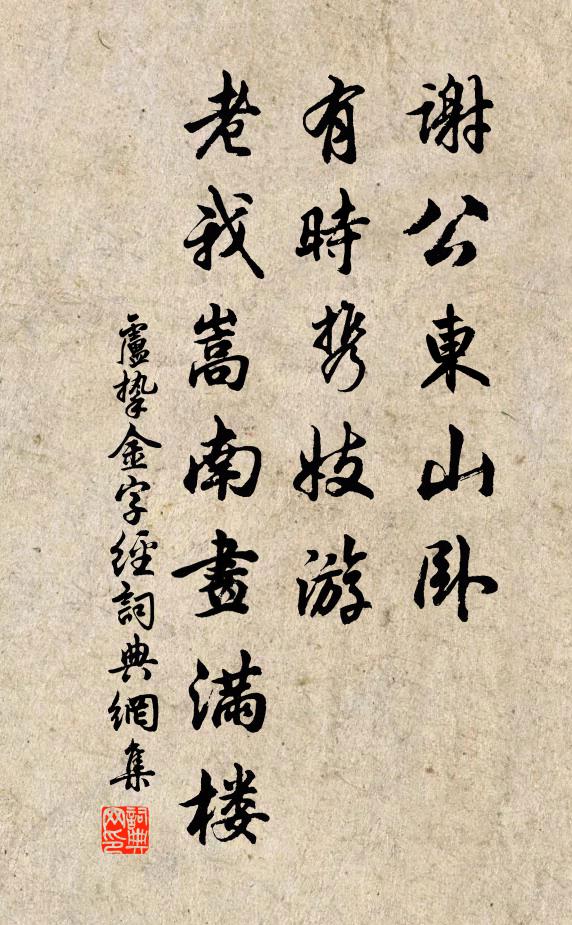 謝公東山卧
有時携妓游
老我嵩南畫滿楼
盧摯金字經詞典網集
詞典网印